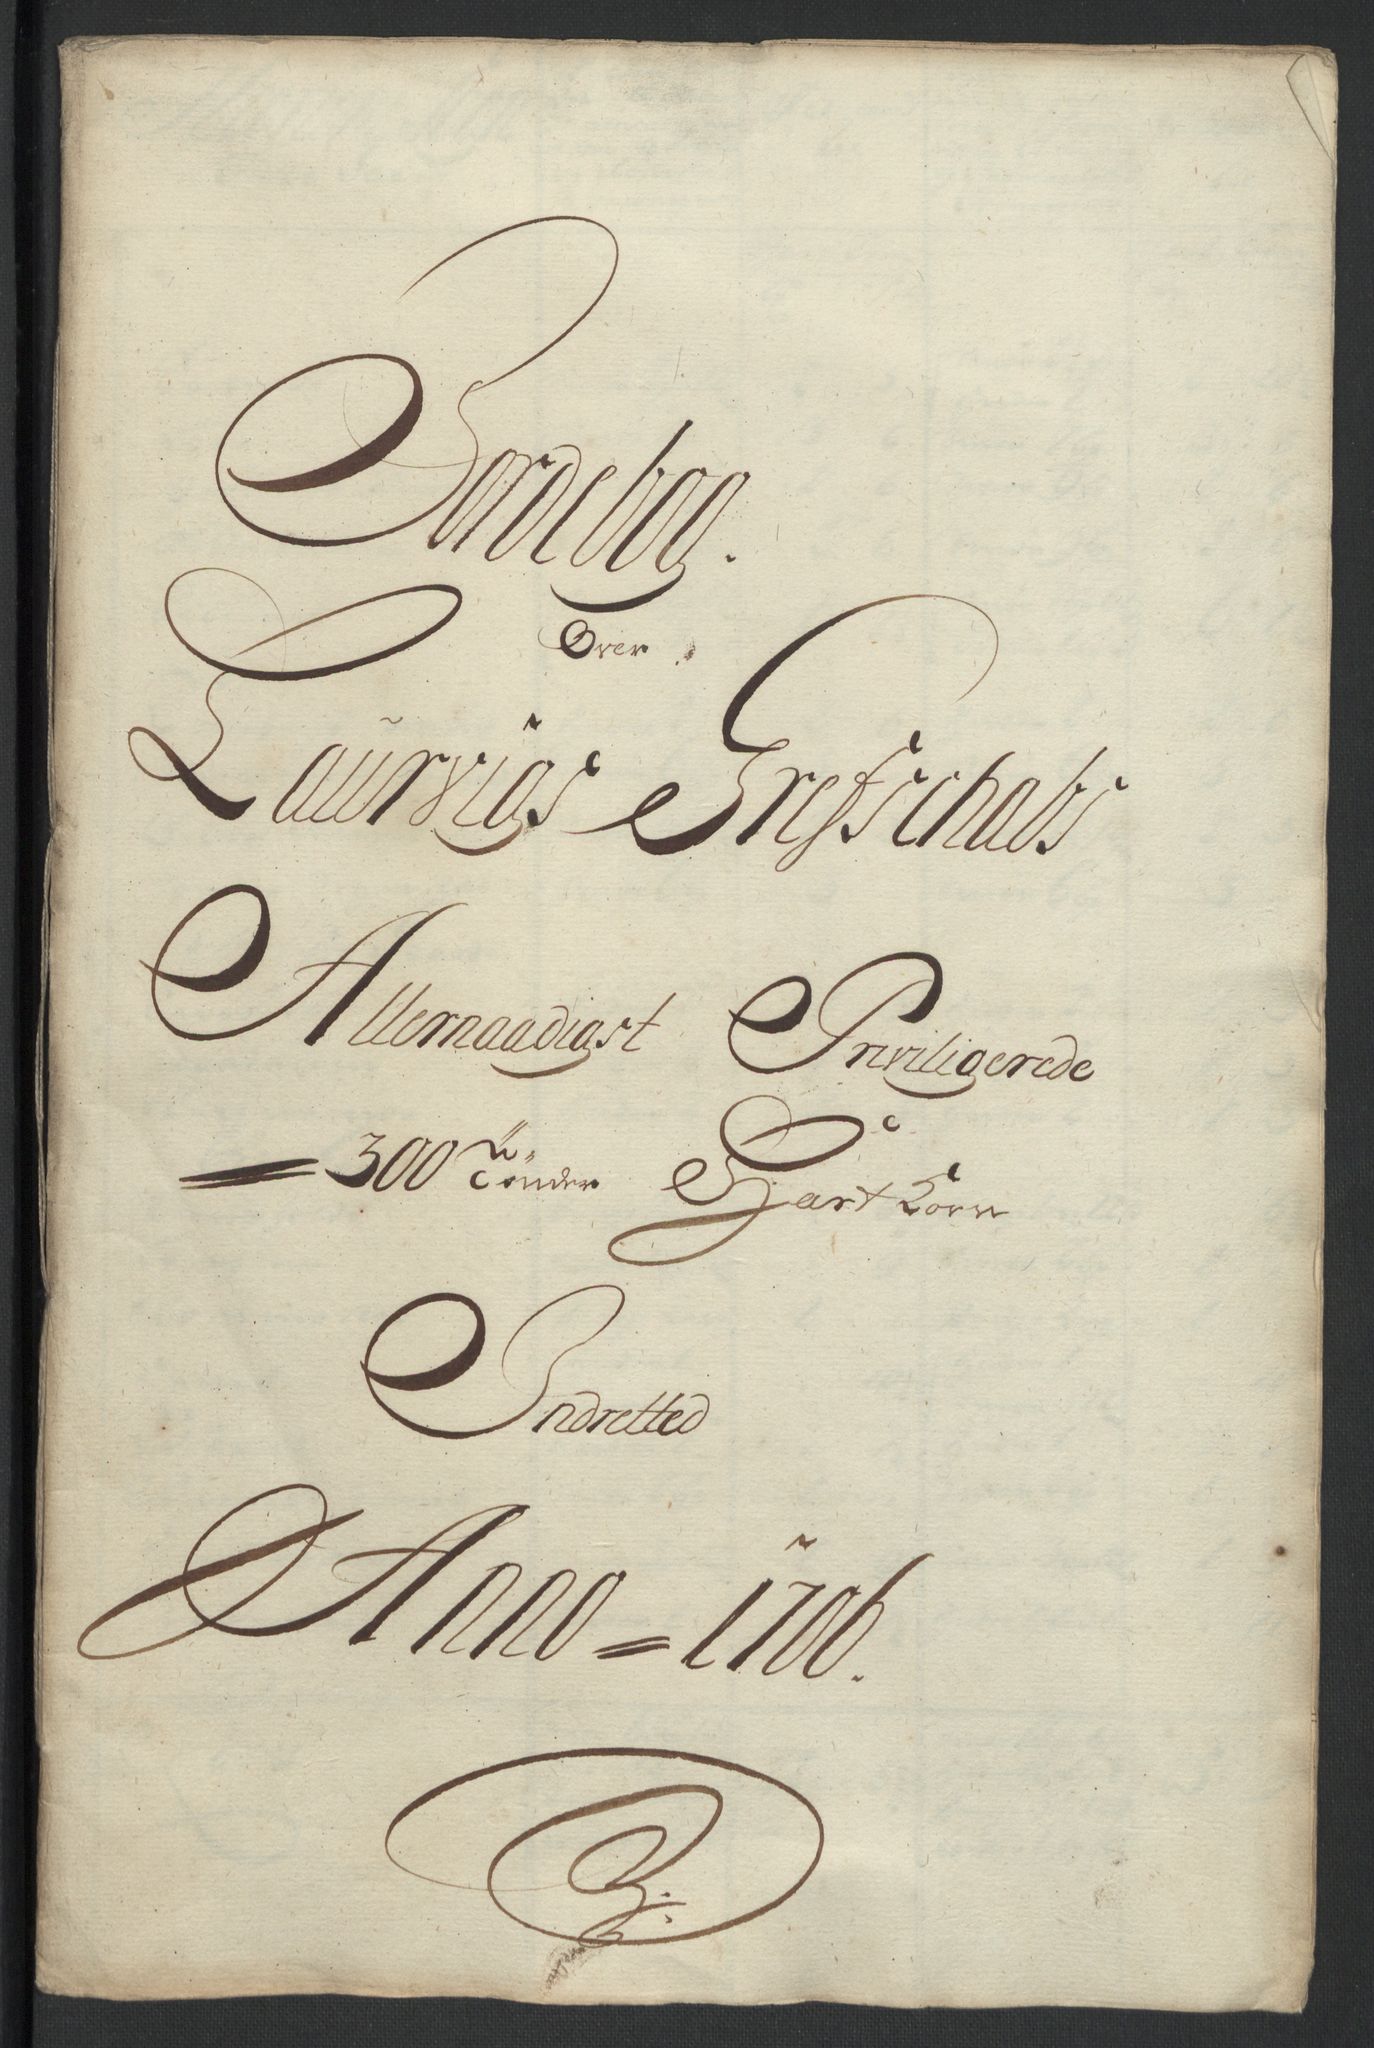 Jordebog.
Over
Laurvigs Grefschabs
Allernaadigst Priviligerede
= 300 Tönder Hart Korn
Indretted
Anno = 1706.